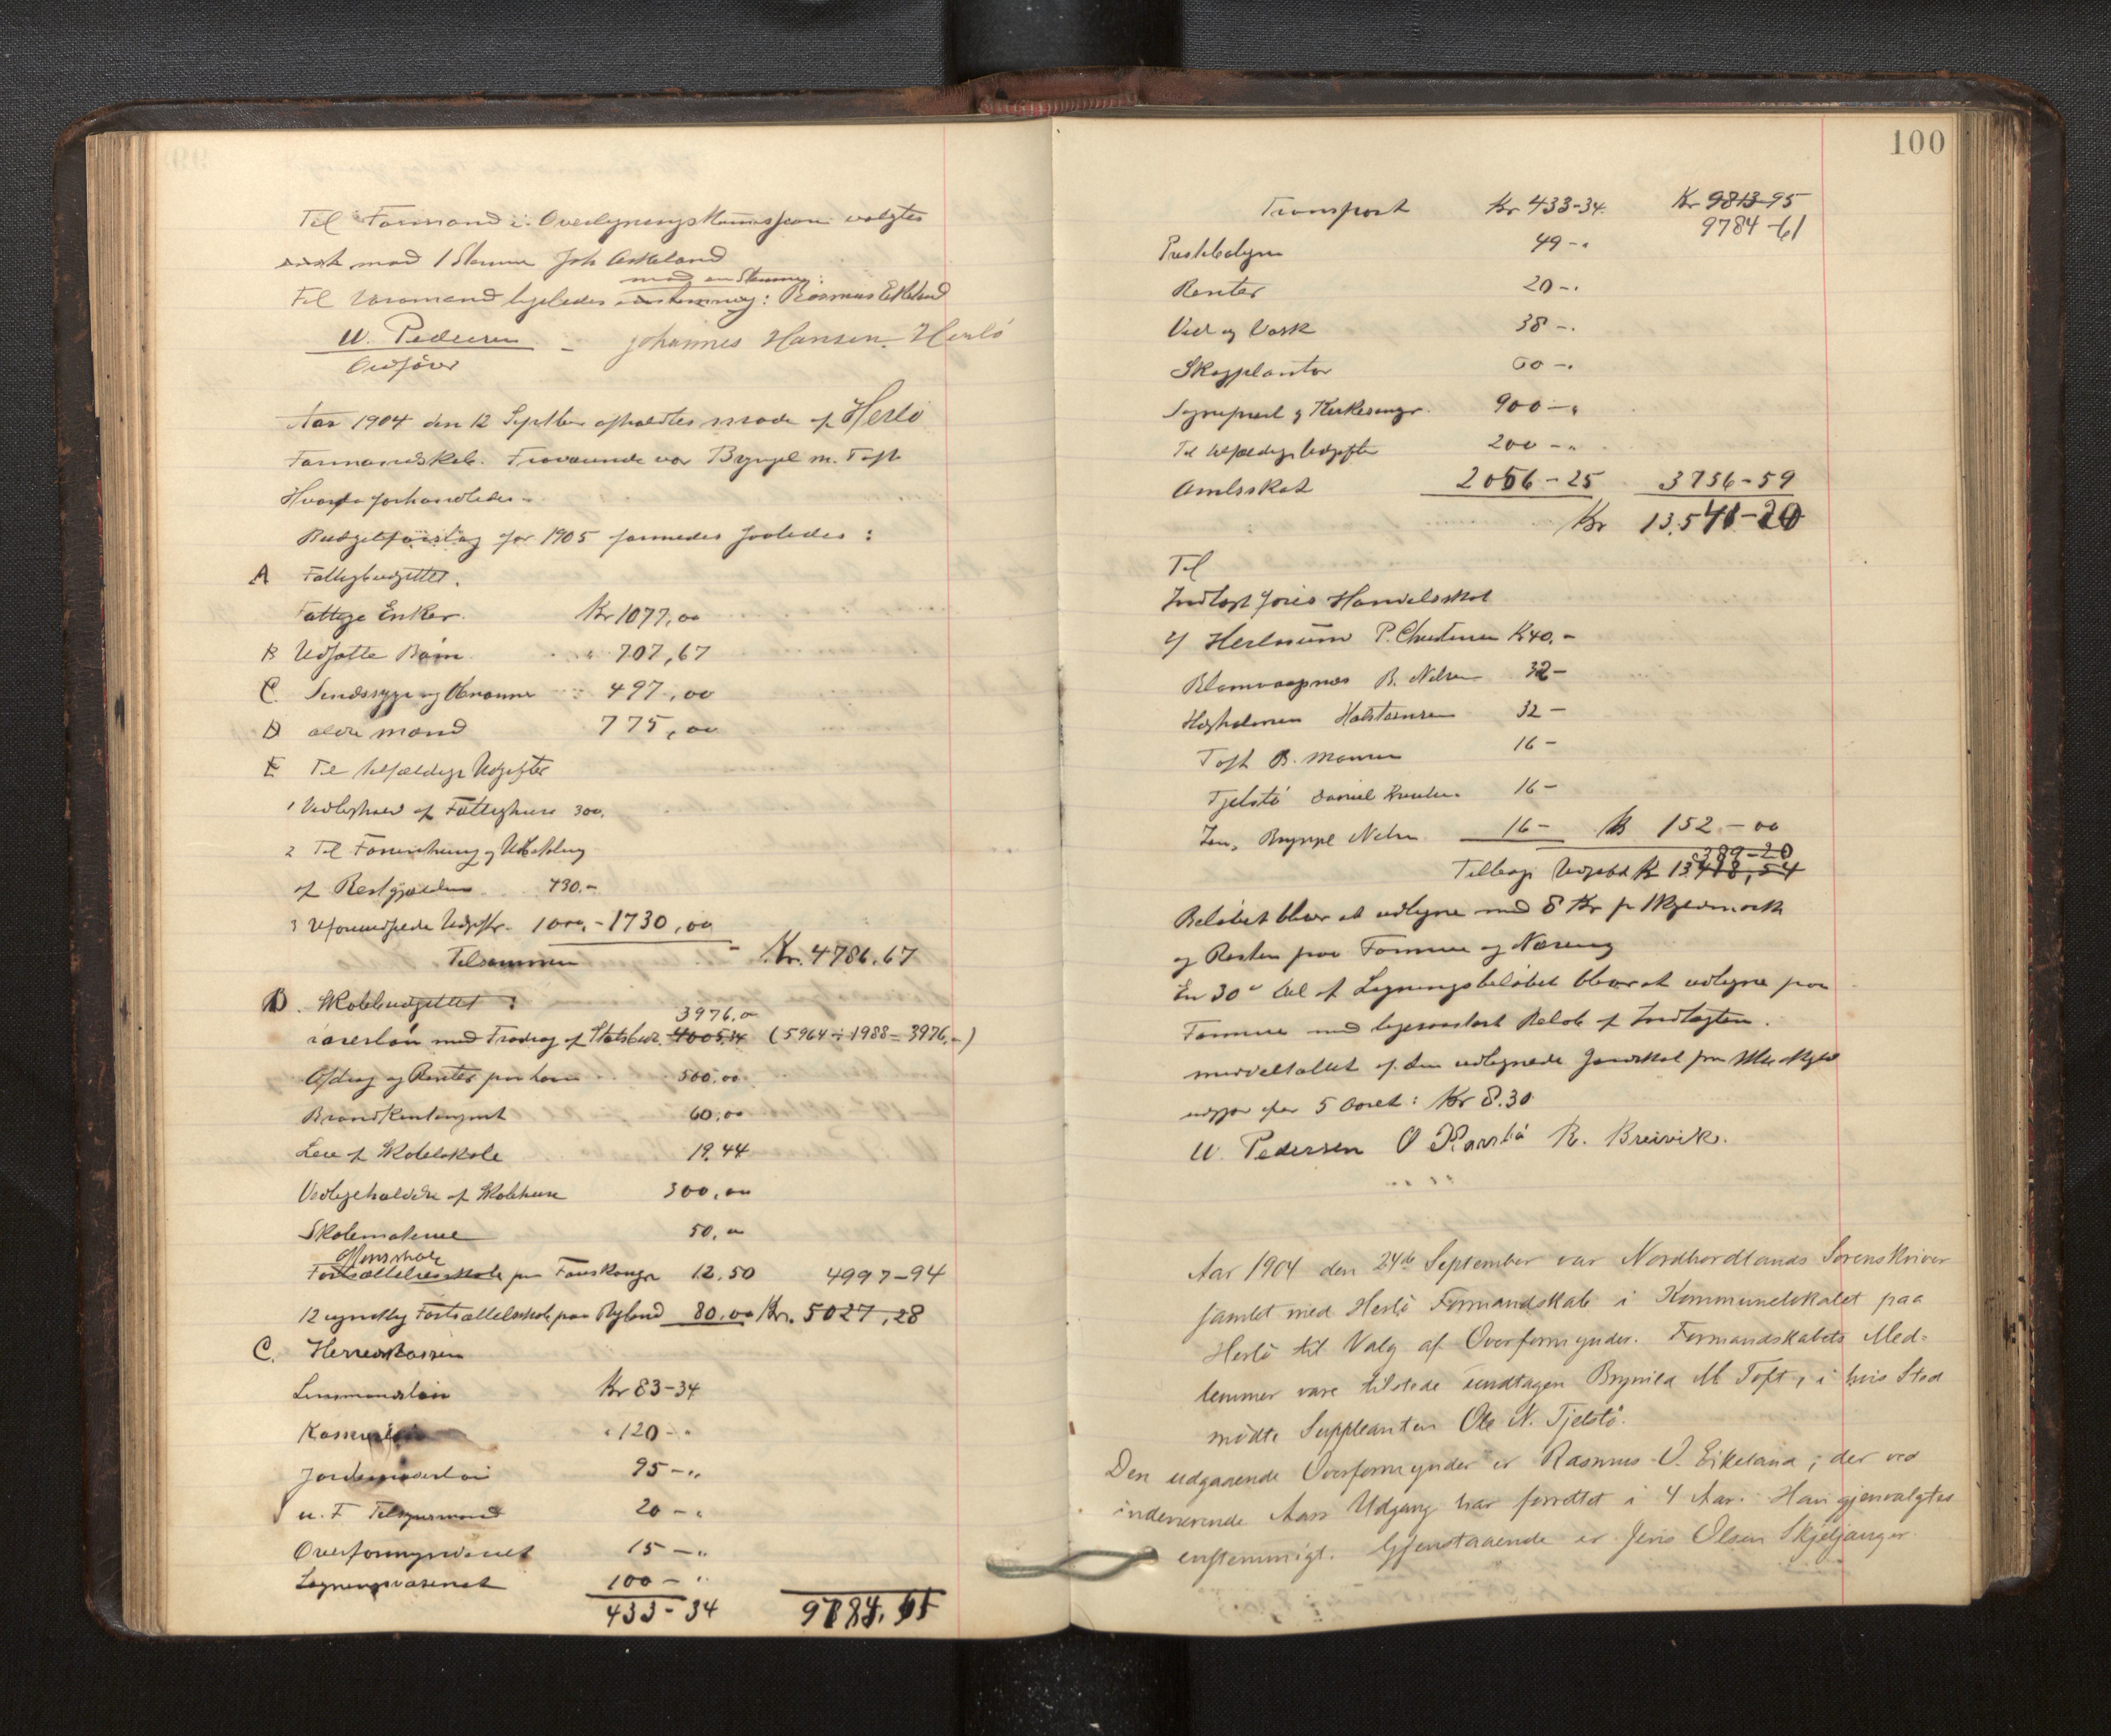 Til Formand i Overligningskommissjonen valgtes
mod 1 Stemme Joh Askeland
mod en Stemme:
Til Varamand ligeledes enstemmig: Rasmus Eikeland
W. Pedersen - Johannes Hansen Herlö
Ordfører
Aar 1904 den 12 Septbr afholdtes møde af Herlö
Formandskab. Fraværende var Brynjel M. Toft
Hvorda forhandledes.
Budgetforslag for 1905 saaledes:
A Fattigbudgettet.
Fattige Enker. Kr 1077,00
B Udsatte Børn " 707,67
C. Sindssyge og 497,00
D ældre mænd 775,00
E Til tilfældige Udgifter
1 Vedligehold af Fattighuse 300.
2 Til Forrentning og Udbetaling
af Restgjælden 430.-
3 Uforudseede Udgifter. 1000.- 1730,00
Tilsammen - Kr. 4786.67
B. Skolebudgettet:
3976.00
Lærerløn med Fradrag af Statsbidr. 4005,34 (5964 ÷ 1988 = 3976.-)
Afdrag og Renter paa Laan 500,00
Brandkontingent 60,00
Leie af Skolelokale 19.44
Vedligeholdelse af Skolehuse 300,00
Skolemateriel 50,00
Aftenskole
Fortsættelsesskole paa Fauskanger 12.50 4997-94
12 ugentlig Fortsættelsesskole paa Ryland 80.00 Kr. 5027,28
C. Herredskassen
Lensmandsløn Kr 83-34
Kasserløn " 120-"
Jordemoderløn 95-"
u. F Tilsynsmænd 20-"
Overformynderiet 15-"
Ligningsvæsenet 100-"
433-34 9784,61
100
Transport Kr 433-34. Kr 9813-95
9784-61
Presteboligen 49-"
Renter 20-"
Ved og Vask 38-"
Skogplanter 60-"
Sogneprest og Kirkesanger. 900-"
Til tilfældige Udgifter 200-"
Amtsskat 2056-25 3756-59
Kr 13.541-20
Til
Indtægt føres Handelsskat
af Herlöund P. Christensen Kr 40.-
Blomvaagnes B. Nilsen 32-
Hogholmen Halstensen 32-
Toft B. Monsen 16-
Tjelstö Daniel Knudsen 16-
Brynjel Nilsen 16- Kr 152-00
389-20
Tilbage Udgifter Kr 13.418,54
Beløbet bliver at udligne med 8 Kr pr Skjeldmark
og Resten paa Formue og Næring
En 30te del af Ligningsbeløbet bliver at udligne paa
Formue med ligesaastort Beløb af Indtægten.
middeltallet af den udlignede Jordskat paa Skyld
udgjør for 5 Aaret: Kr 8.30
W. Pedersen O Rossö R. Breivik.
Aar 1904 den 24de September var Nordhordlands Sorenskriver
samlet med Herlö Formandskab i Kommunelokalet paa
Herlö til Valg af Overformynder. Formandskabets Med-
lemmer vare tilstede undtagen Brynild M Toft, i hvis Sted
mødte Suppleanten Ole N. Tjelstö.
Den udgaaende Overformynder er Rasmus O. Eikeland; der ved
indeværende Aars Udgang har forrettet i 4 Aar. Han gjenvalgtes
enstemmigt. Gjenstaaende er Jens Olsen Skjeljanger.